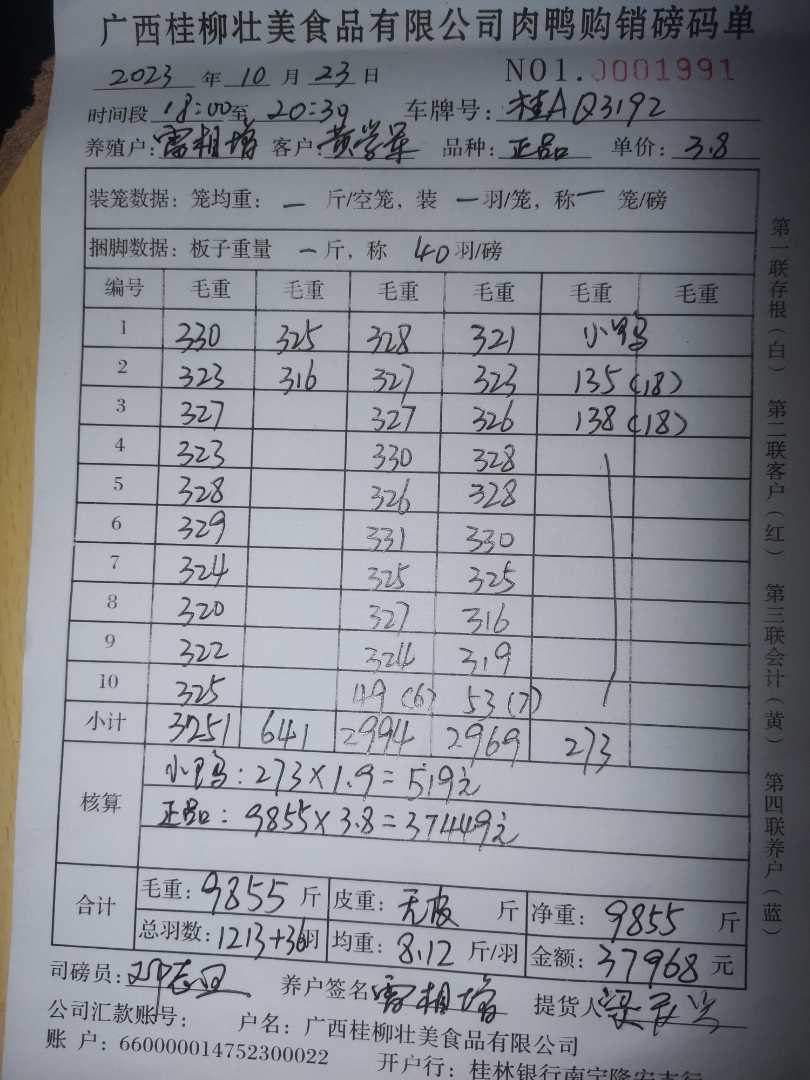 广西桂柳壮美食品有限公司肉鸭购销磅码单
2023 年 10 月 23 日 NO1.0001991
时间段 18:00至 20:30 车牌号: 桂A Q3192
养殖户: 雷相增 客户: 黄学军 品种: 正品 单价: 3.8
装笼数据: 笼均重: 一 斤/空笼, 装 一 羽/笼, 称 一 笼/磅
捆脚数据: 板子重量 一 斤, 称 40 羽/磅
编号 毛重 毛重 毛重 毛重 毛重 毛重
1 330 325 328 321 小鸭
2 323 316 327 323 135(18)
3 327 327 326 138(18)
4 323 330 328
5 328 326 328
6 329 331 330
7 324 325 325
8 320 327 316
9 322 324 319
10 325 49(6) 53(7)
小计 3251 641 2994 2969 273
核算
小鸭: 273×1.9=519元
正品: 9855×3.8=37449元
合计
毛重: 9855 斤 皮重: 无皮 斤 净重: 9855 斤
总羽数: 1213+36羽 均重: 8.12 斤/羽 金额: 37968 元
司磅员: 养户签名 雷相增 提货人
公司汇款账号: 户名: 广西桂柳壮美食品有限公司
账 户: 660000014752300022 开户行: 桂林银行南宁隆安支行
第一联存根(白) 第二联客户(红) 第三联会计(黄) 第四联养户(蓝)